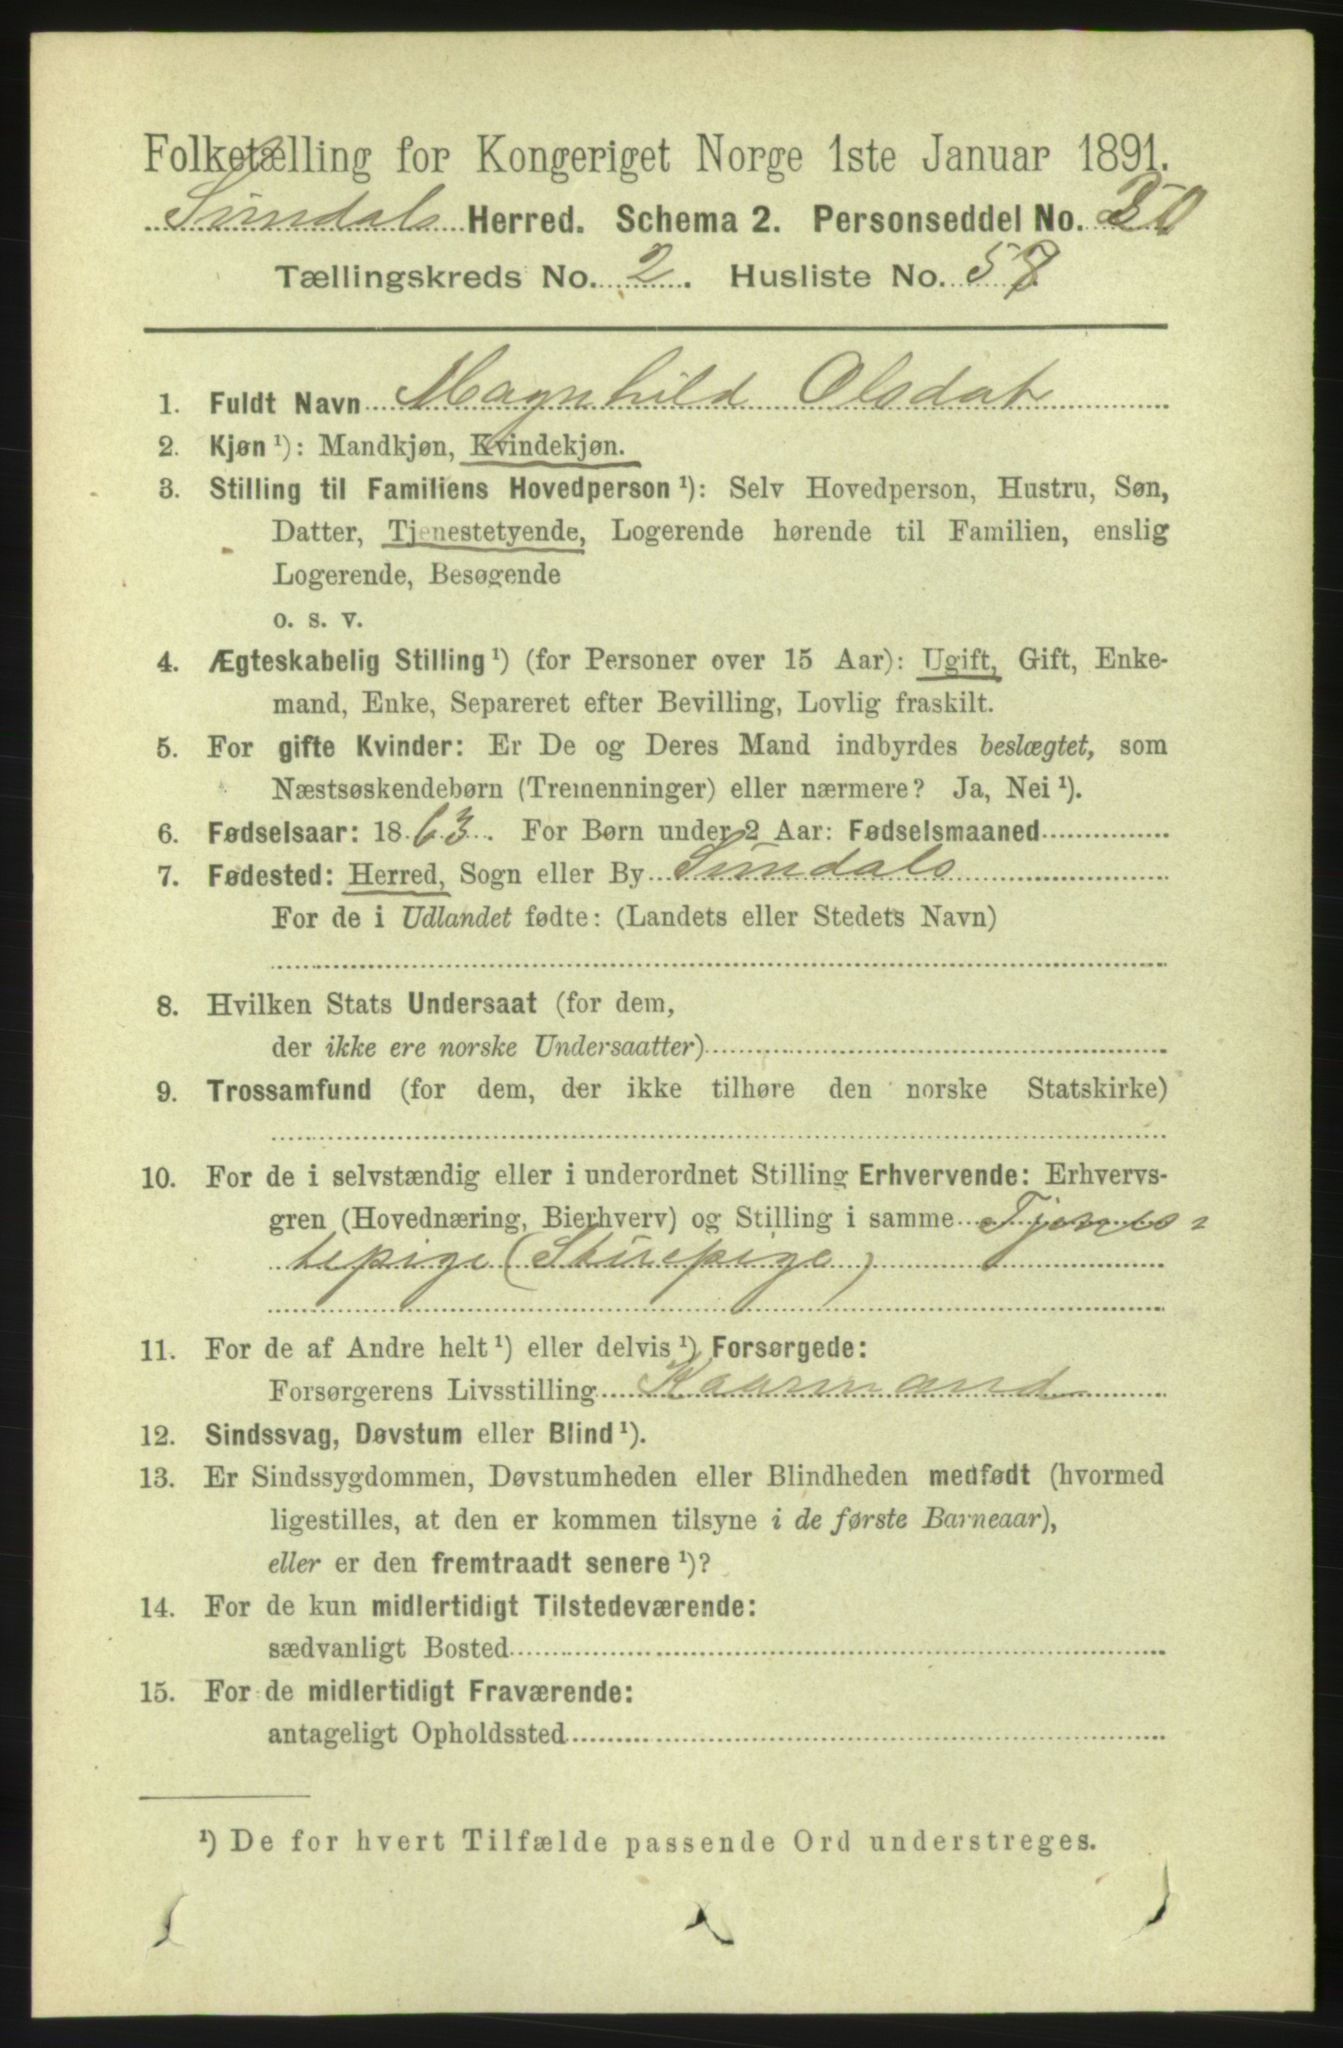 Folketælling for Kongeriget Norge 1ste Januar 1891.
Sundals Herred. Schema 2. Personseddel No.
Tællingskreds No. 2. Husliste No. 57
1. Fuldt Navn Magnhild Olsdat
2. Kjøn¹): Mandkjøn, Kvindekjøn.
3. Stilling til Familiens Hovedperson¹): Selv Hovedperson, Hustru, Søn,
Datter, Tjenestetyende, Logerende hørende til Familien, enslig
Logerende, Besøgende
o. s. v.
4. Ægteskabelig Stilling¹) (for Personer over 15 Aar): Ugift, Gift, Enke-
mand, Enke, Separeret efter Bevilling, Lovlig fraskilt.
5. For gifte Kvinder: Er De og Deres Mand indbyrdes beslægtet, som
Næstsøskendebørn (Tremenninger) eller nærmere? Ja, Nei¹).
6. Fødselsaar: 1863. For Børn under 2 Aar: Fødselsmaaned
7. Fødested: Herred, Sogn eller By Sundals
For de i Udlandet fødte: (Landets eller Stedets Navn)
8. Hvilken Stats Undersaat (for dem,
der ikke ere norske Undersaatter)
9. Trossamfund (for dem, der ikke tilhøre den norske Statskirke)
10. For de i selvstændig eller i underordnet Stilling Erhvervende: Erhvervs-
gren (Hovednæring, Bierhverv) og Stilling i samme Tjenes=
tepige (Stuepige)
11. For de af Andre helt¹) eller delvis¹) Forsørgede:
Forsørgerens Livsstilling Kaarmand
12. Sindssvag, Døvstum eller Blind¹).
13. Er Sindssygdommen, Døvstumheden eller Blindheden medfødt (hvormed
ligestilles, at den er kommen tilsyne i de første Barneaar),
eller er den fremtraadt senere¹)?
14. For de kun midlertidigt Tilstedeværende:
sædvanligt Bosted
15. For de midlertidigt Fraværende:
antageligt Opholdssted
¹) De for hvert Tilfælde passende Ord understreges.